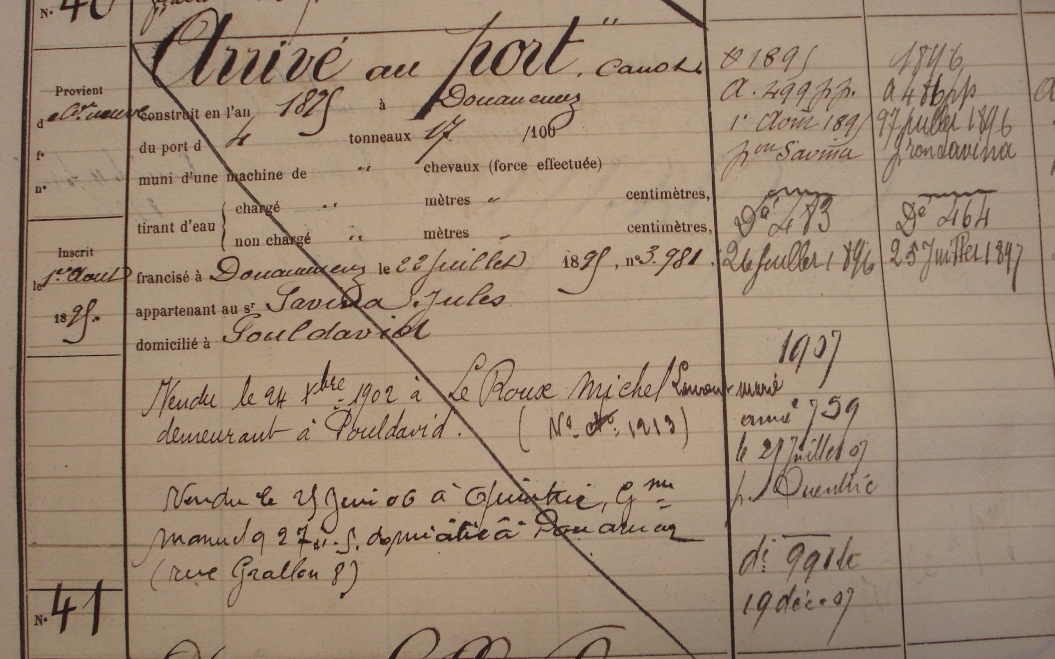 N° 40
Arrivé au port. Canot
Provient
d
f°
n°
construit en l'an 1895 à Douarnenez
du port d 4 tonneaux 17 /100
muni d'une machine de " chevaux (force effectuée)
tirant d'eau { chargé " mètres " centimètres,
non chargé " mètres " centimètres,
Inscrit
le 1er Aout
1895.
francisé à Douarnenez le 22 Juillet 1895, n° 3.981.
appartenant au sr Savina Jules
domicilié à Pouldavid
Vendu le 24 Xbre 1902 à Le Roux Michel
demeurant à Pouldavid. (N° 1213)
Vendu le 25 Juin 06 à Quintric, Gme
domicilié à Douarnenez
(rue Grallon 8)
1895
A. 499 pp.
1er Août 1895
pon Savina
Dé 483
26 Juillet 1896
1907
armé 759
le 27 Juillet 07
p.
dé 991
19 déc. 07
1896
a 486 pp
27 Juillet 1896
pron Savina
Dé 464
25 Juillet 1897
N° 41